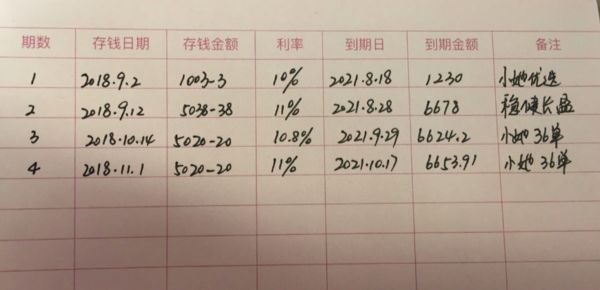 期数 存钱日期 存钱金额 利率 到期日 到期金额 备注
1 2018.9.2 1003-3 10% 2021.8.18 1230 小她优选
2 2018.9.12 5038-38 11% 2021.8.28 6678 稳健长盈
3 2018.10.14 5020-20 10.8% 2021.9.29 6624.2 小她 36单
4 2018.11.1 5020-20 11% 2021.10.17 6653.91 小她 36单